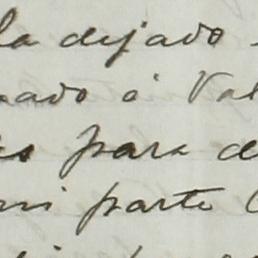 la dejado
ado á Val
para d
mi parte